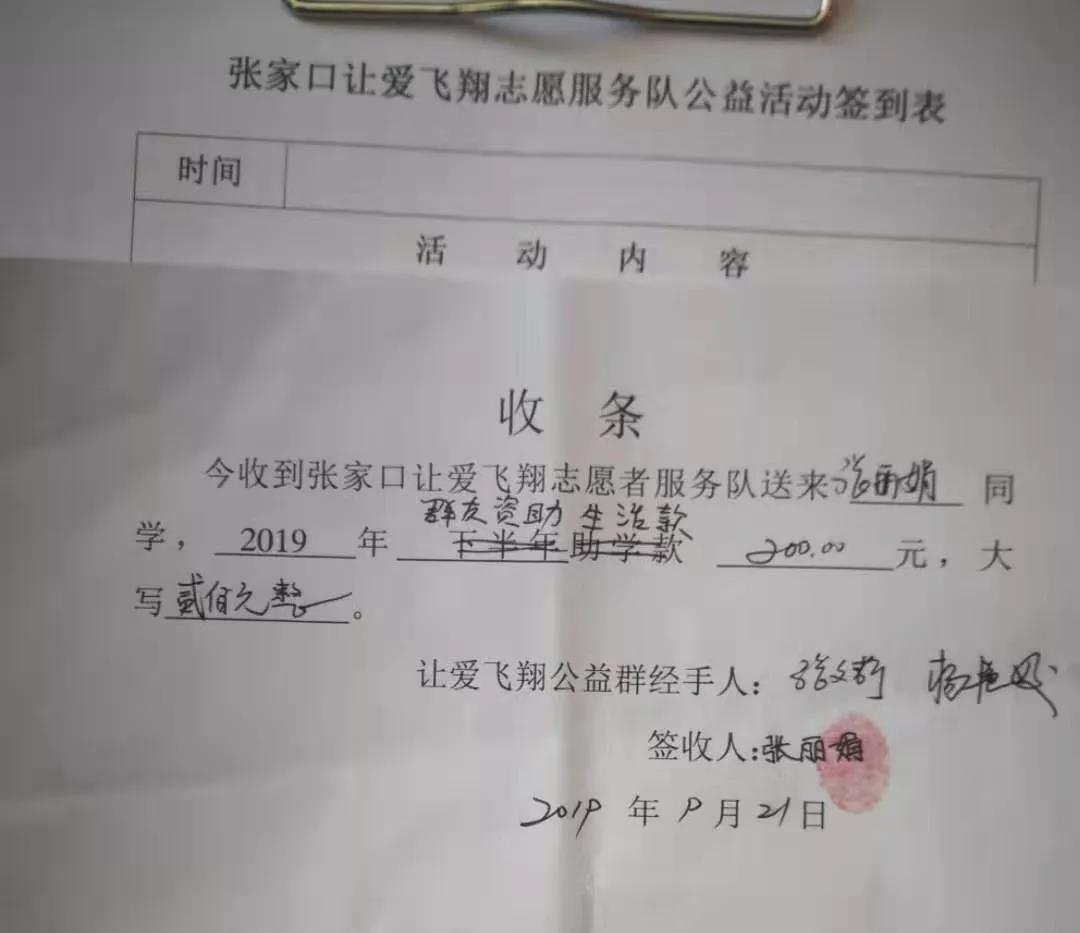 张家口让爱飞翔志愿服务队公益活动签到表
时间
活动内容
收条
今收到张家口让爱飞翔志愿者服务队送来张丽娟同
群友资助生活款
学，2019年下半年助学款200.00元，大
写贰佰元整。
让爱飞翔公益群经手人：
签收人：张丽娟
2019年9月21日